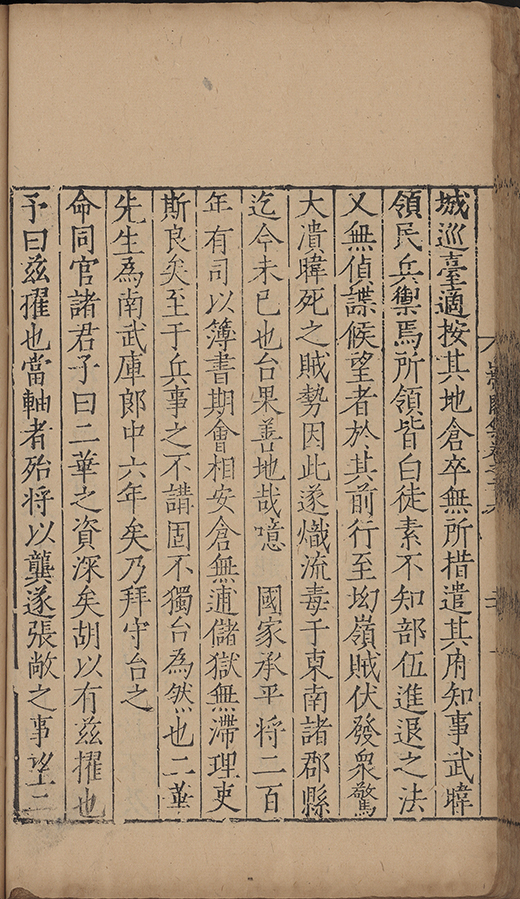 城巡臺適按其地倉卒無所措遣其府知事武暐
領民兵禦焉所領皆白徒素不知部伍進退之法
又無偵諜候望者於其前行至坳嶺賊伏發衆驚
大潰暐死之賊勢因此遂熾流毒于東南諸郡縣
迄今未已也台果善地哉噫　國家承平將二百
年有司以簿書期會相安倉無逋儲獄無滯理吏
斯良矣至于兵事之不講固不獨台為然也二華
先生為南武庫郎中六年矣乃拜守台之
命同官諸君子曰二華之資深矣胡以有茲擢也
予曰茲擢也當軸者殆将以龔遂張敞之事望二